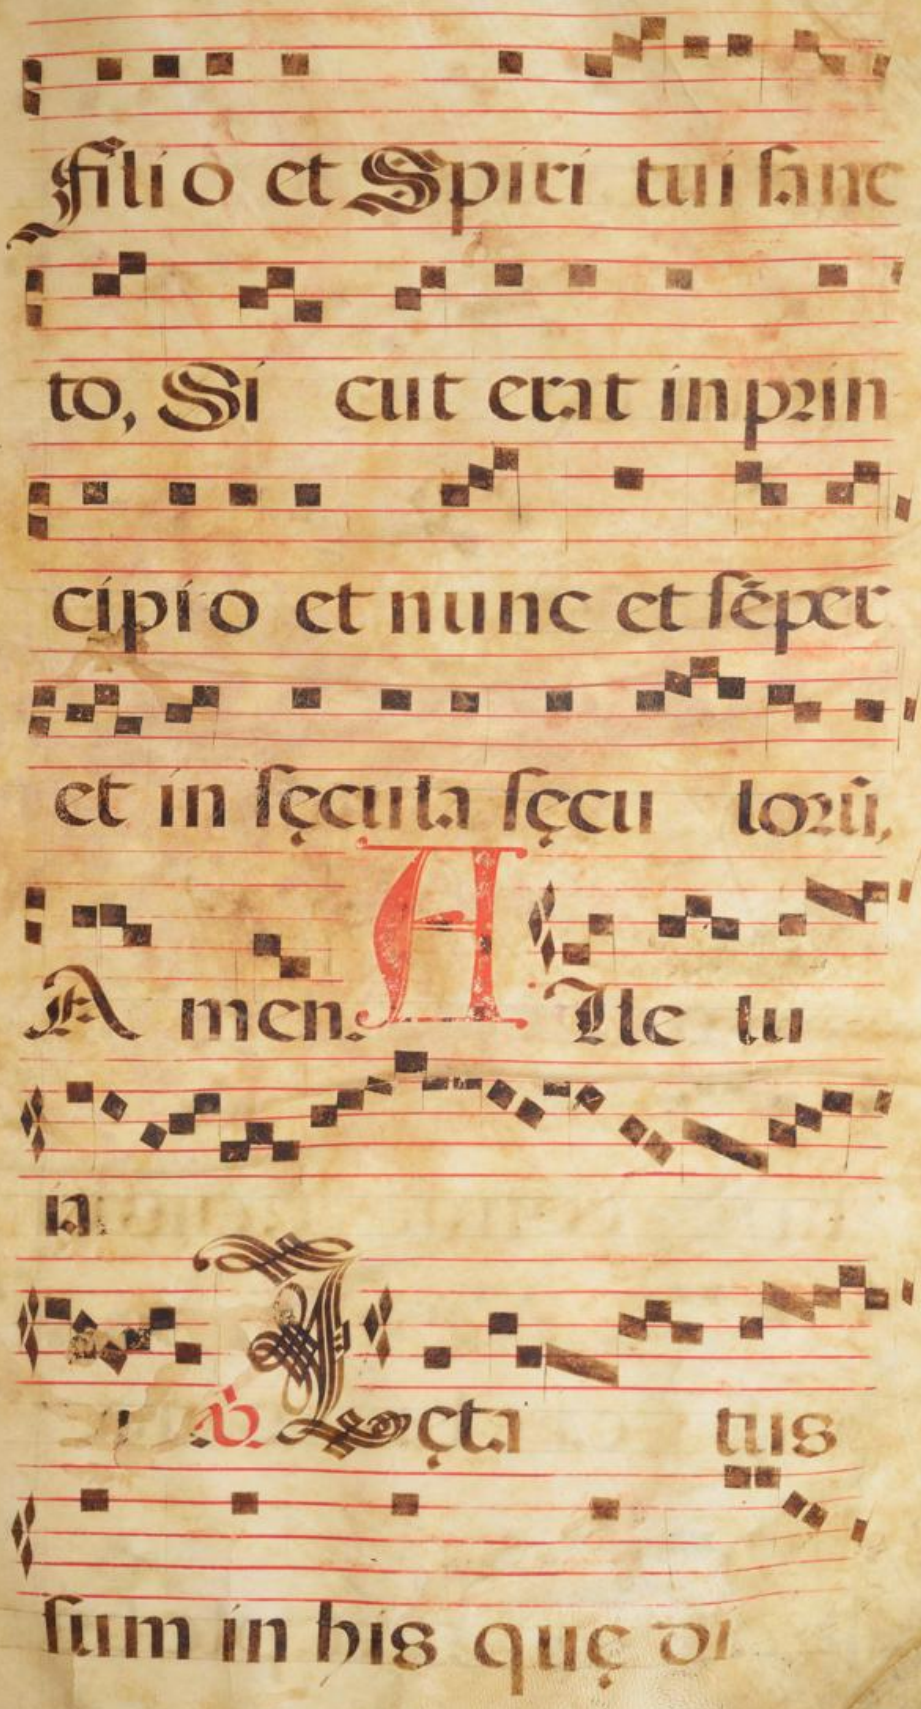 Filio et Spiri tui sanc
to, Si cut erat in prin
cipio et nunc et sēper
et in sęcula sęcu lorū,
A men. A lle lu
ia
℣ Lęta tus
sum in his quę di